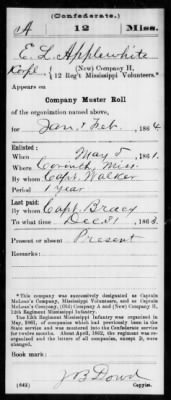 (Confederate.)
A 12 Miss.
E. L. Applewhite
Corpl., { (New) Company H,
12 Reg't Mississippi Volunteers.*
Appears on
Company Muster Roll
of the organization named above,
for Jan. & Feb., 1864
Enlisted:
When May 5, 1861.
Where Corinth, Miss.
By whom Capt. Walker
Period 1 year
Last paid:
By whom Capt. Bracy
To what time Dec. 31, 1863.
Present or absent Present
Remarks:
*This company was successively designated as Captain
McLean's Company, Mississippi Volunteers, and as Captain
McLean's Company, (Old) Company A and (New) Company H,
12th Regiment Mississippi Infantry.
The 12th Regiment Mississippi Infantry was organized in
May, 1861, of companies which had previously been in the
State service and was mustered into the Confederate service
for twelve months. About April, 1862, the regiment was re-
organized and the letters of all companies, except D, were
changed.
Book mark:
J B Dowd
(642) Copyist.